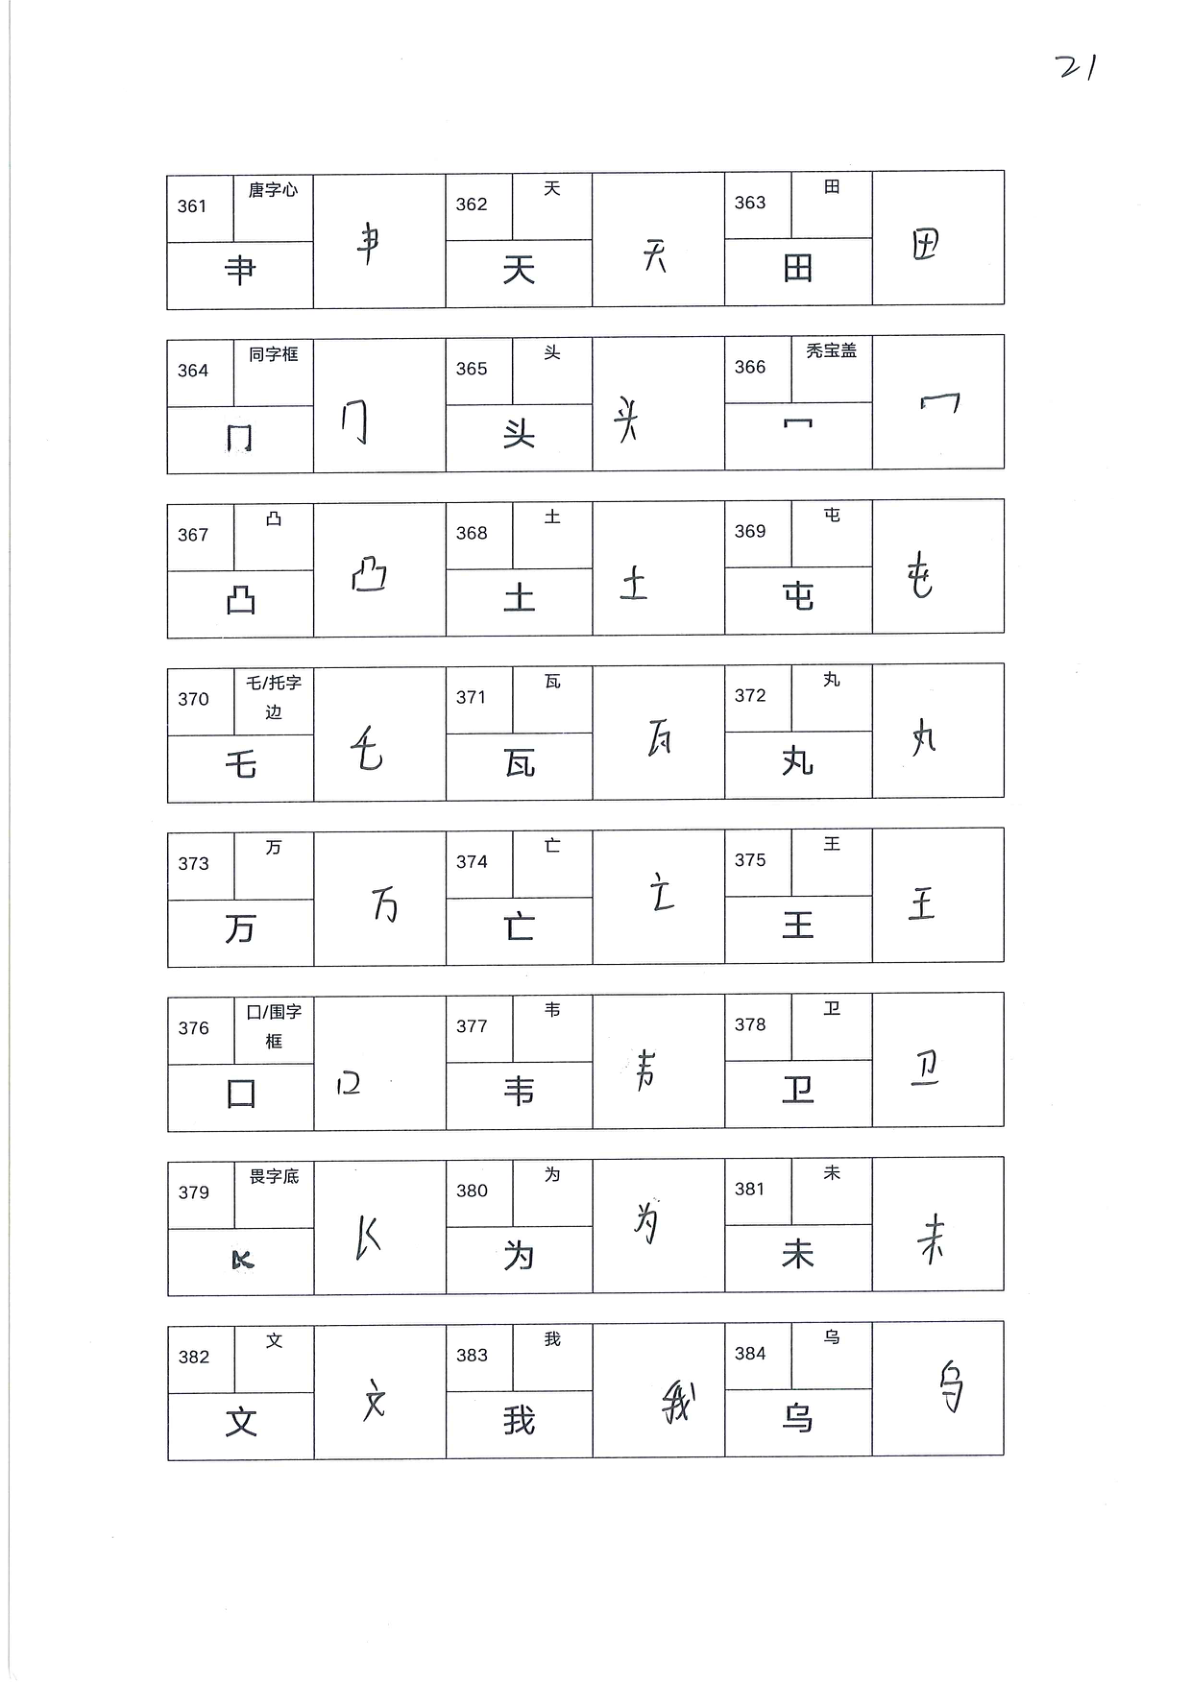 21
361 唐字心 肀 肀 362 天 天 天 363 田 田 田
364 同字框 冂 冂 365 头 头 头 366 秃宝盖 冖 冖
367 凸 凸 凸 368 土 土 土 369 屯 屯 屯
370 乇/托字边 乇 乇 371 瓦 瓦 瓦 372 丸 丸 丸
373 万 万 万 374 亡 亡 亡 375 王 王 王
376 囗/围字框 囗 囗 377 韦 韦 韦 378 卫 卫 卫
379 畏字底 380 为 为 为 381 未 未 未
382 文 文 文 383 我 我 我 384 乌 乌 乌